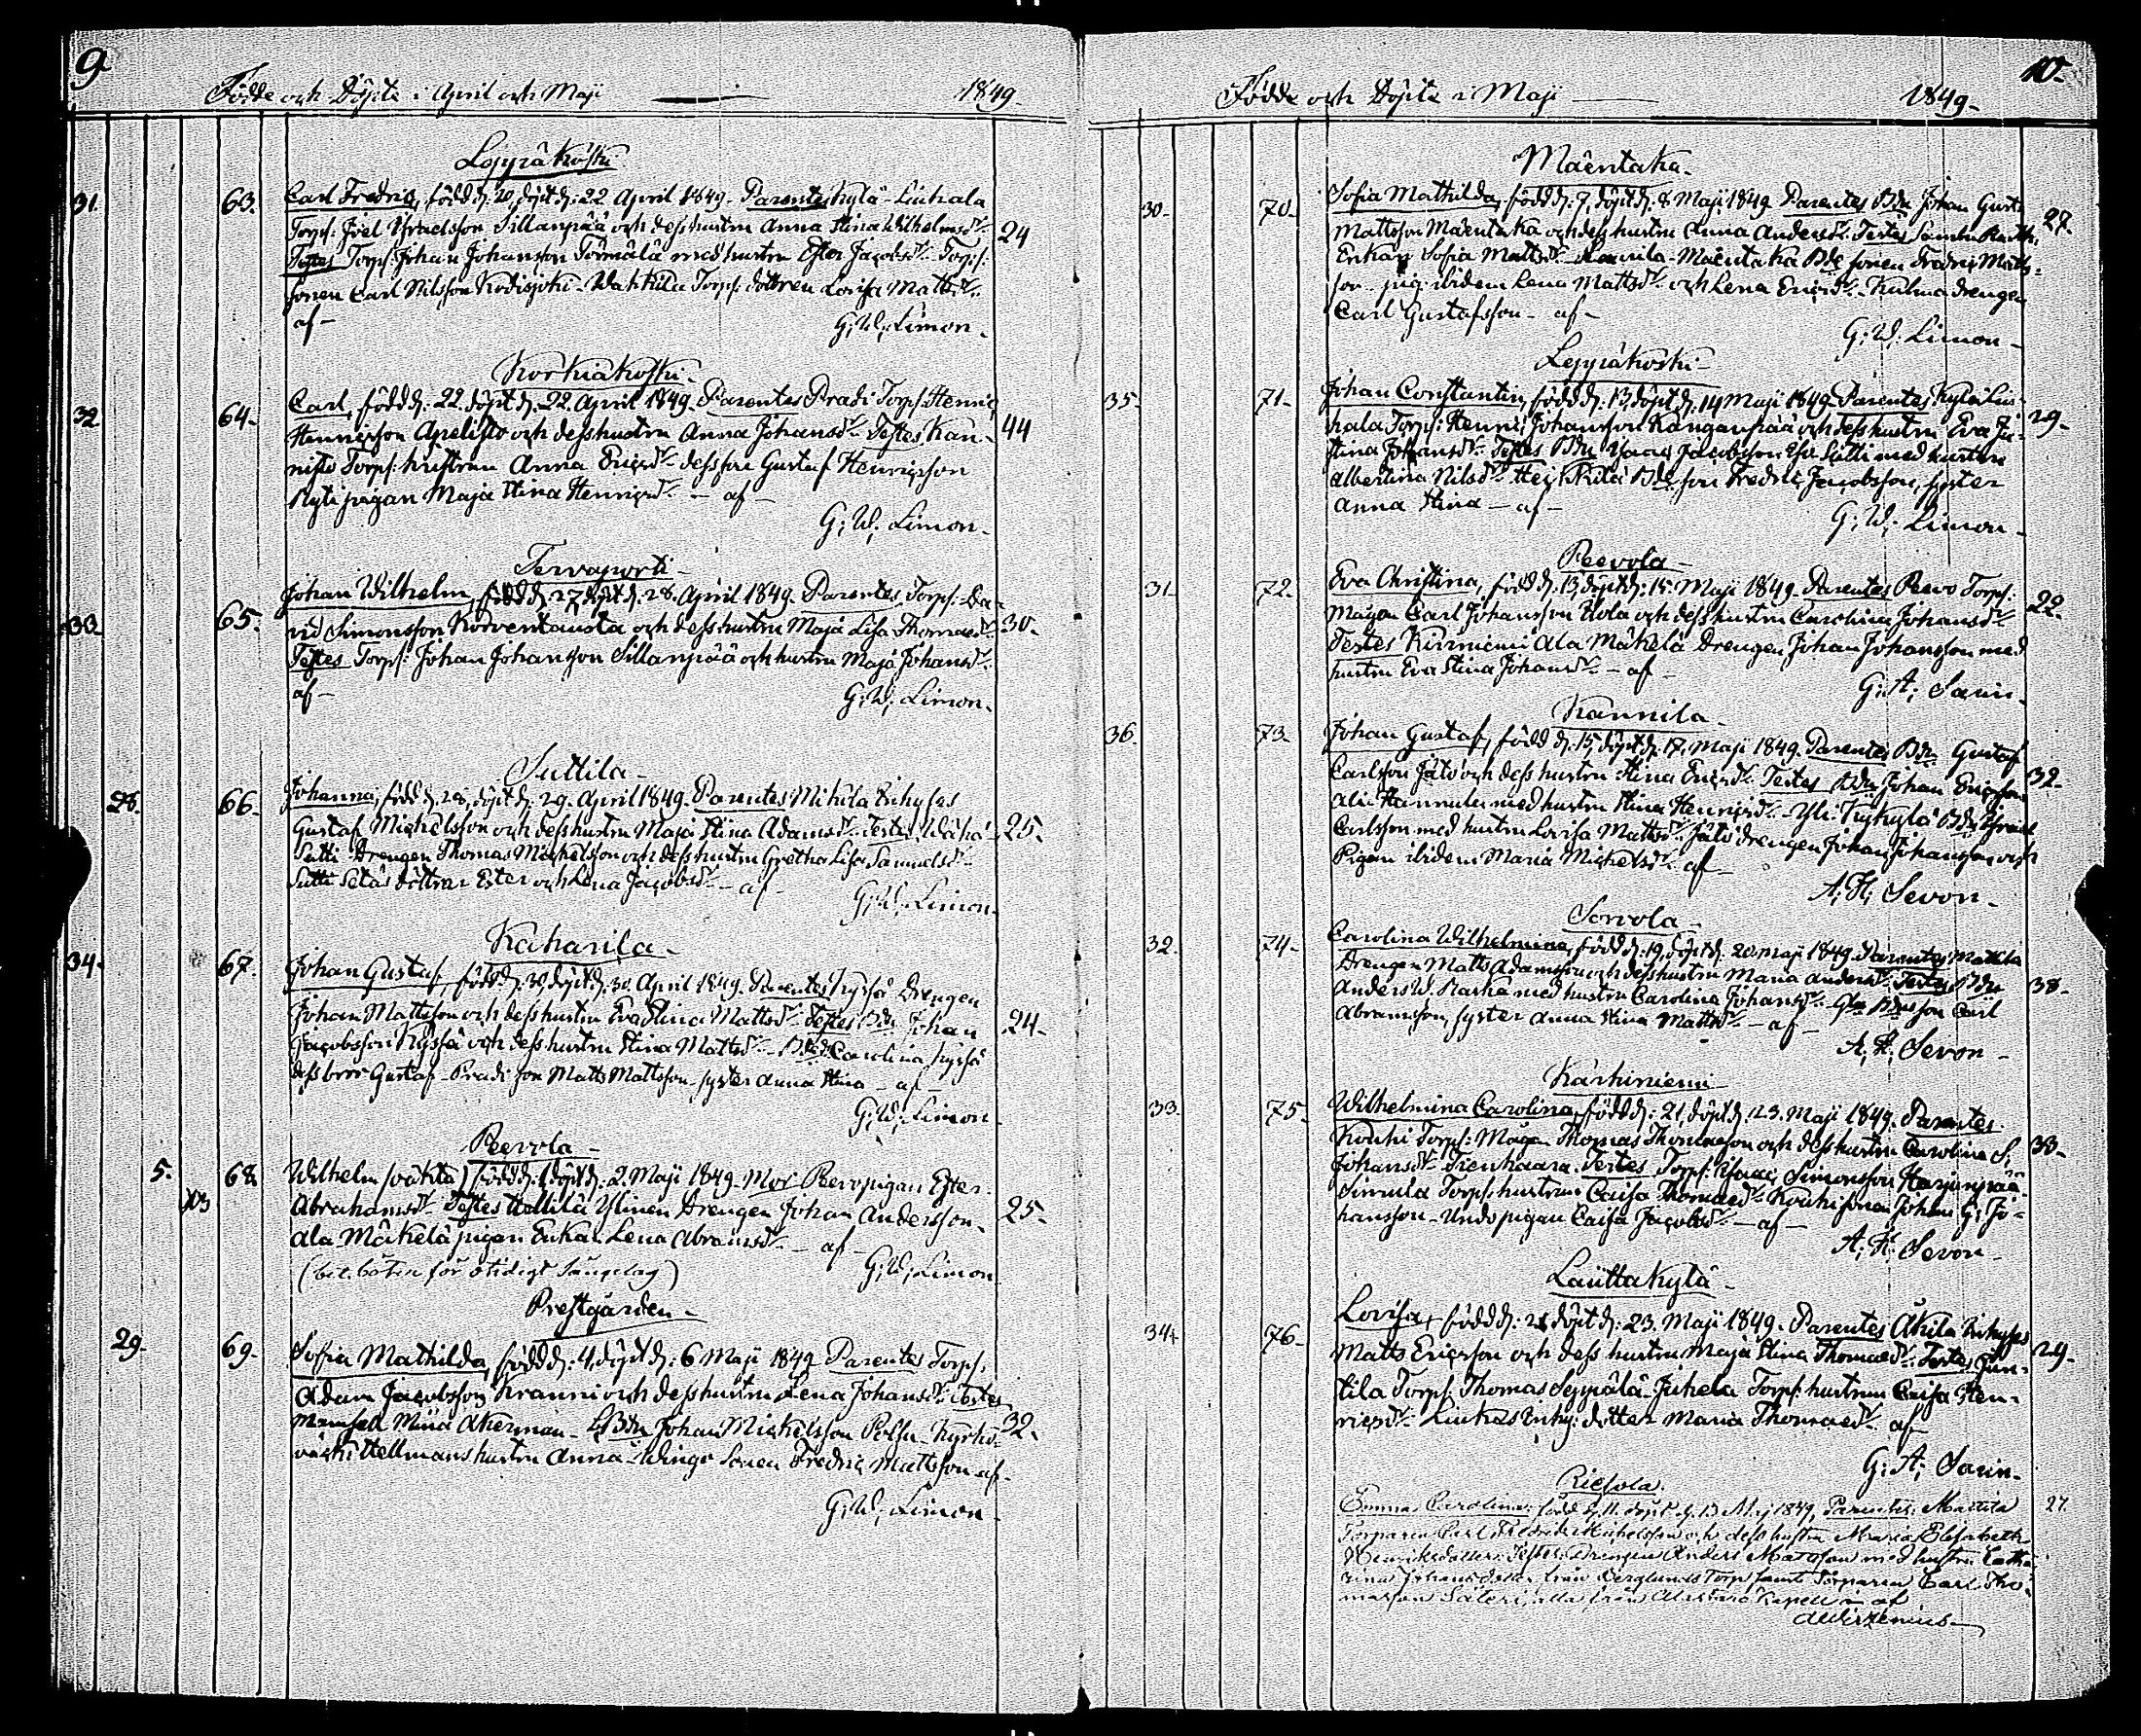 9
Födde och Döpte i April och Maji — 1849
Leppäkoski
31. 63. Carl Fredric, född d. 20, döpt d. 22 April 1849. Parentes Kylä-Liuhala
Torp: Joel Israelsson Sillanpää och dess hustru Anna Stina Wilhelmsdr. 24
Testes Torp: Johan Johansson Törmälä med hustru Ester Jacobsdr. Torp:
sonen Carl Nilsson Kodisjoki - Wahkila Torp: dottren Lovisa Mattsdr.
af -
G: W: Limon.
Korkiakoski
32 64. Carl, född d. 22. döpt d. 22. April 1849. Parentes Pradi Torp: Henric
Henricsson Apelisto och dess hustru Anna Johansd. Testes Kan- 44
nisto Torp: hustrun Anna Ericsd. dess son Gustaf Henricsson
Kyti pigan Maja Stina Henricsd. - af -
G: W: Limon.
Tervaporti
33. 65. Johan Wilhelm, född d. 27, döpt d. 28. April 1849. Parentes, Torp: Da-
vid Simonsson Korventausta och dess hustru Maja Lisa Thomaed. 30.
Testes Torp: Johan Johansson Sillanpää och hustru Maja Johansd.
af -
G: W: Limon.
Suttila
28. 66. Johanna, född d. 28, döpt d. 29. April 1849. Parentes Mikola Inhyses
Gustaf Michelsson och dess hustru Maja Stina Adamsd. Testes Wähä 25.
Sutti Drengen Thomas Michelsson och dess hustru Gretha Lisa Samuelsd.
Sutti Setäs döttrar Ester och Lena Jacobsd. - af -
G: W: Limon.
Kaharila
34. 67. Johan Gustaf, född d. 30, döpt d. 30. April 1849. Parentes Kyssä Drengen
Johan Mattsson och dess hustru Eva Stina Mattsd. Testes Bdn Johan 24.
Jacobsson Kyssä och dess hustru Stina Mattsd. - Carolina Kyssä
dess bror Gustaf - Pradi son Matts Mattsson - syster Anna Stina - af -
G: W: Limon
Peevola
5. 68. Wilhelm (oäkta) född d. 1, döpt d. 2. Maji 1849. Mor Peevo pigan Ester
Abrahamsd. Testes Hallilä Ylinen Drengen Johan Andersson. 25.
Ala Mäkelä pigan Enkan Lena Abramsd. - af -
(bet. böten för otidigt sängelag) G: W: Limon
Prestgården
29. 69. Sofia Mathilda, född d. 4, döpt d. 6 Maji 1849 Parentes Torp:
Adam Jacobsson Kranni och dess hustru Lena Johansd. Testes
Mamsell Mina Åkerman - Bdn Johan Mickelsson Polsu - Kyrko- 32.
väkt: Hellmans hustru Anna - Wingo Sonen Fredric Mattsson af -
G: W: Limon
10
Födde och Döpte i Maji — 1849
Mäentaka
30. 70. Sofia Mathilda, född d. 7, döpt d. 8 Maji 1849 Parentes Bdn Johan Gust: 27.
Mattsson Mäentaka och dess hustru Anna Andersd. Testes
Enkan Sofia Mattsd. - Mäentaka Bde sonen Fredric Matts-
son - pig: ibidem Lena Mattsd. och Lena Ericsd. - Kulma drengen
Carl Gustafsson - af -
G: W: Limon -
Leppäkoski
35. 71. Johan Constantin, född d. 13, döpt d. 14 Maji 1849 Parentes Kylä Liu-
hala Torp: Henric Johansson Kanganpää och dess hustru Eva Ju- 29.
stina Johansd. Testes Bdn Isaac Jacobsson Iso Sutti med hustru
Albertina Nilsd. Hei Bde son Fredric Jacobsson, syster
Anna Stina - af -
G: W: Limon
Peevola
31. 72. Eva Christina, född d. 13, döpt d. 15. Maji 1849. Parentes Peevo Torp: 22.
mågen Carl Johansson Kola och dess hustru Carolina Johansd.
Testes Kivniemi Ala Mäkelä Drengen Johan Johansson med
hustru Eva Stina Johansd. - af -
G: A: Sarin.
Kannila
36. 73. Johan Gustaf, född d. 15, döpt d. 17. Maji 1849. Parentes Bdn Gustaf
Carlsson Jato och dess hustru Stina Ericsd. Testes Bdn Johan Ericsson 32.
Ali Hannula med hustru Stina Henricsd. - Yli Kykylä Bdn Israel
Carlsson med hustru Lovisa Mattsd. Jato drengen Johan Johansson och
Pigan ibidem Maria Michelsd. af -
A: H: Sevon -
Sorvola
32. 74. Carolina Wilhelmina, född d. 19, döpt d. 20 Maji 1849. Parentes Mattila
Drengen Matts Adamsson och dess hustru Maria Andersd. Testes Bdn 38.
Anders W. Marka med hustru Carolina Johansd. - Bdns son Carl
Abramsson, syster Anna Stina Mattsd. - af -
A: H: Sevon -
Karhiniemi
33. 75. Wilhelmina Carolina, född d. 21, döpt d. 23. Maji 1849. Parentes
Kouhi Torp: Mågen Thomas Thomasson och dess hustru Carolina S. 33.
Johansd. Trenhaara. Testes Torp: Isaac Simonsson Harjunpää
Simula Torp: hustrun Caisa Thomaed. - Kouhi sonen Johan G: Jo-
hansson - Undo pigan Caisa Jacobsd. - af -
A: H: Sevon -
Lauttakylä
34. 76. Lovisa, född d. 21 döpt d. 23. Maji 1849. Parentes Äkila Inhyses
Matts Ericsson och dess hustru Maja Stina Thomaed. Testes Jun- 29.
tila Torp: Thomas Seppälä - Juhela Torp: hustrun Caisa Hen-
ricsd. - Liukas Inhy: dotter Maria Thomaed. af -
G: A: Sarin.
Riesola.
Emma Carolina, född d. 11. döpt d. 13 Maj 1849, Parentes: Mattila 27.
Torparen Carl Fredrik Michelsson och dess hustru Maria Elisabeth
Henriksdotter. Testes: Drengen Anders Mattsson med hustru Catha-
rina Johansdotter från Berglunds Torp samt Torparen Carl Tho-
masson Säteri, alla från Alastaro Kapell af
A Wirzenius